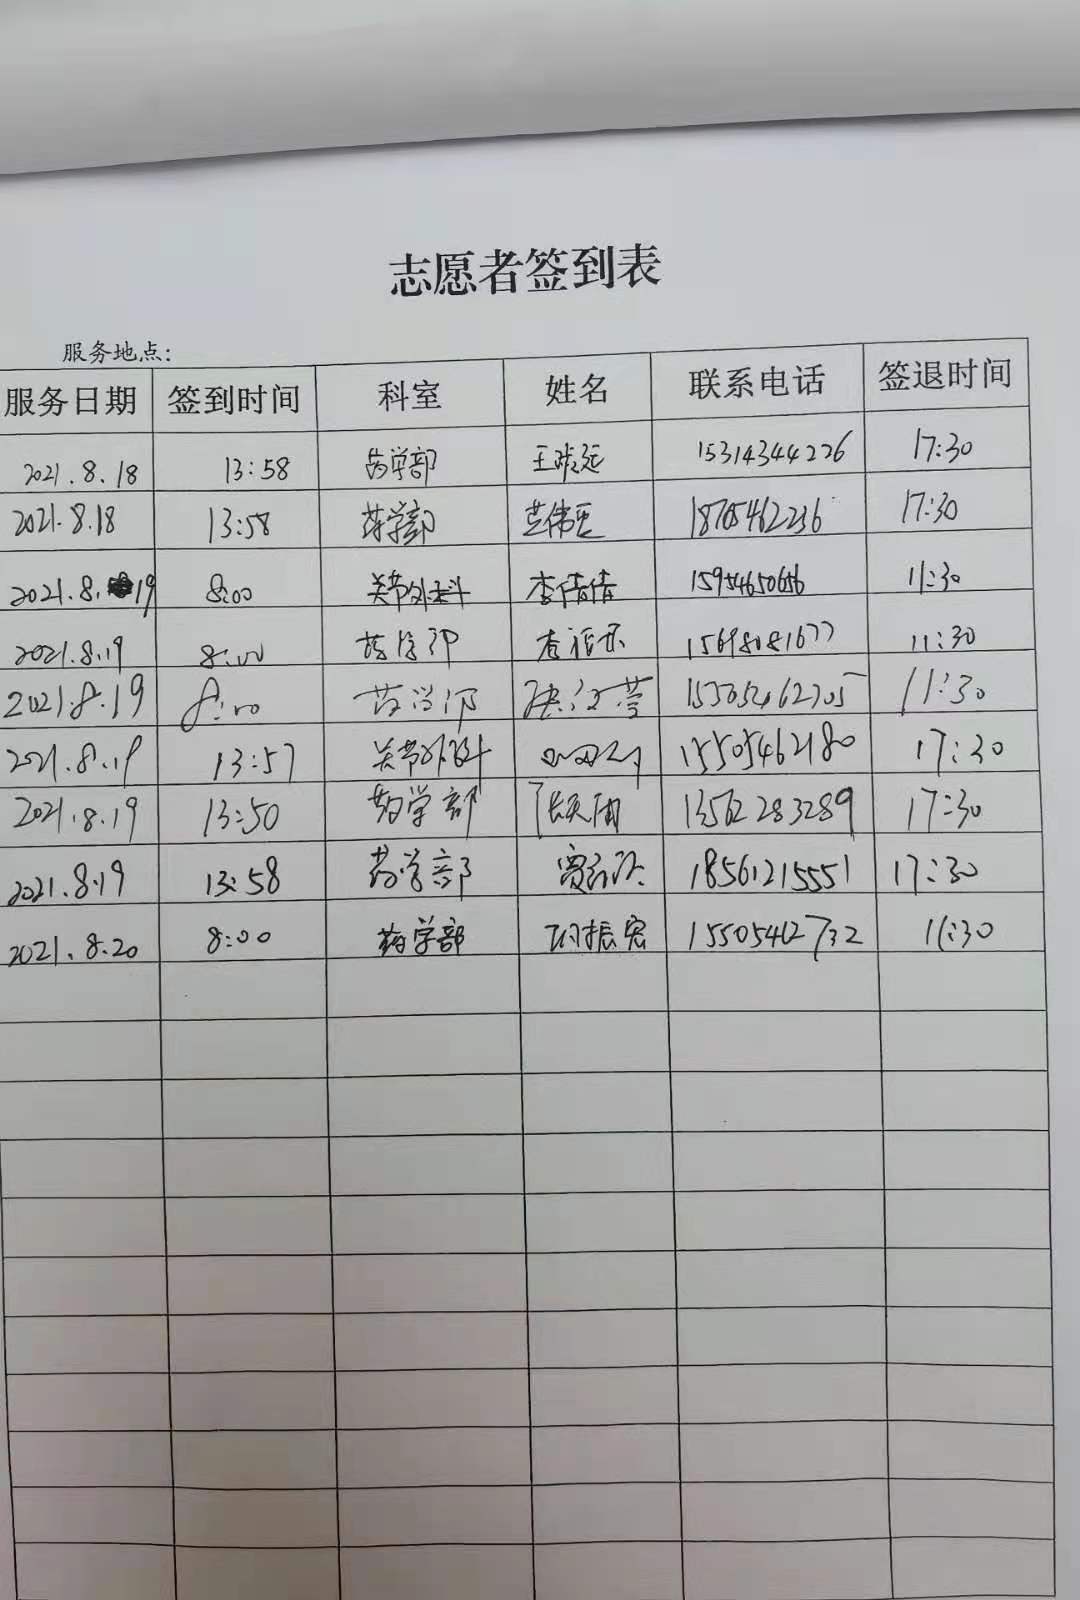 志愿者签到表
服务地点:
服务日期 签到时间 科室 姓名 联系电话 签退时间
2021.8.18 13:58 药学部 15314344226 17:30
2021.8.18 13:58 药学部 18705462236 17:30
2021.8.19 8:00 关节外科 李倩倩 15954650656 11:30
2021.8.19 8:00 药学部 15698081677 11:30
2021.8.19 8:00 药学部 11:30
2021.8.19 13:57 关节外科 15505462180 17:30
2021.8.19 13:50 药学部 13562283289 17:30
2021.8.19 13:58 药学部 18561215551 17:30
2021.8.20 8:00 药学部 11:30